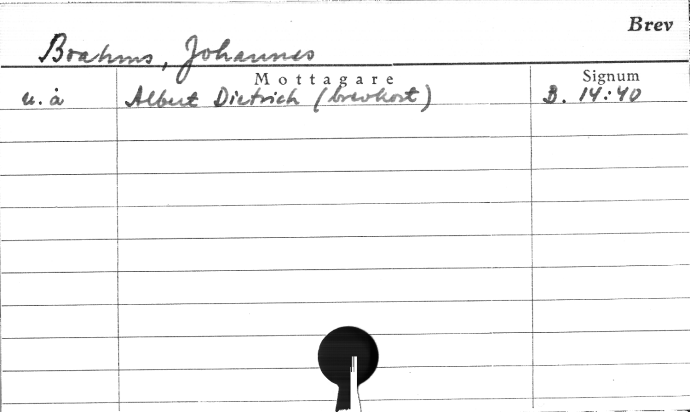 Brev
Brahms, Johannes
Mottagare Signum
u. å Albert Dietrich (brevkort) B. 14:40